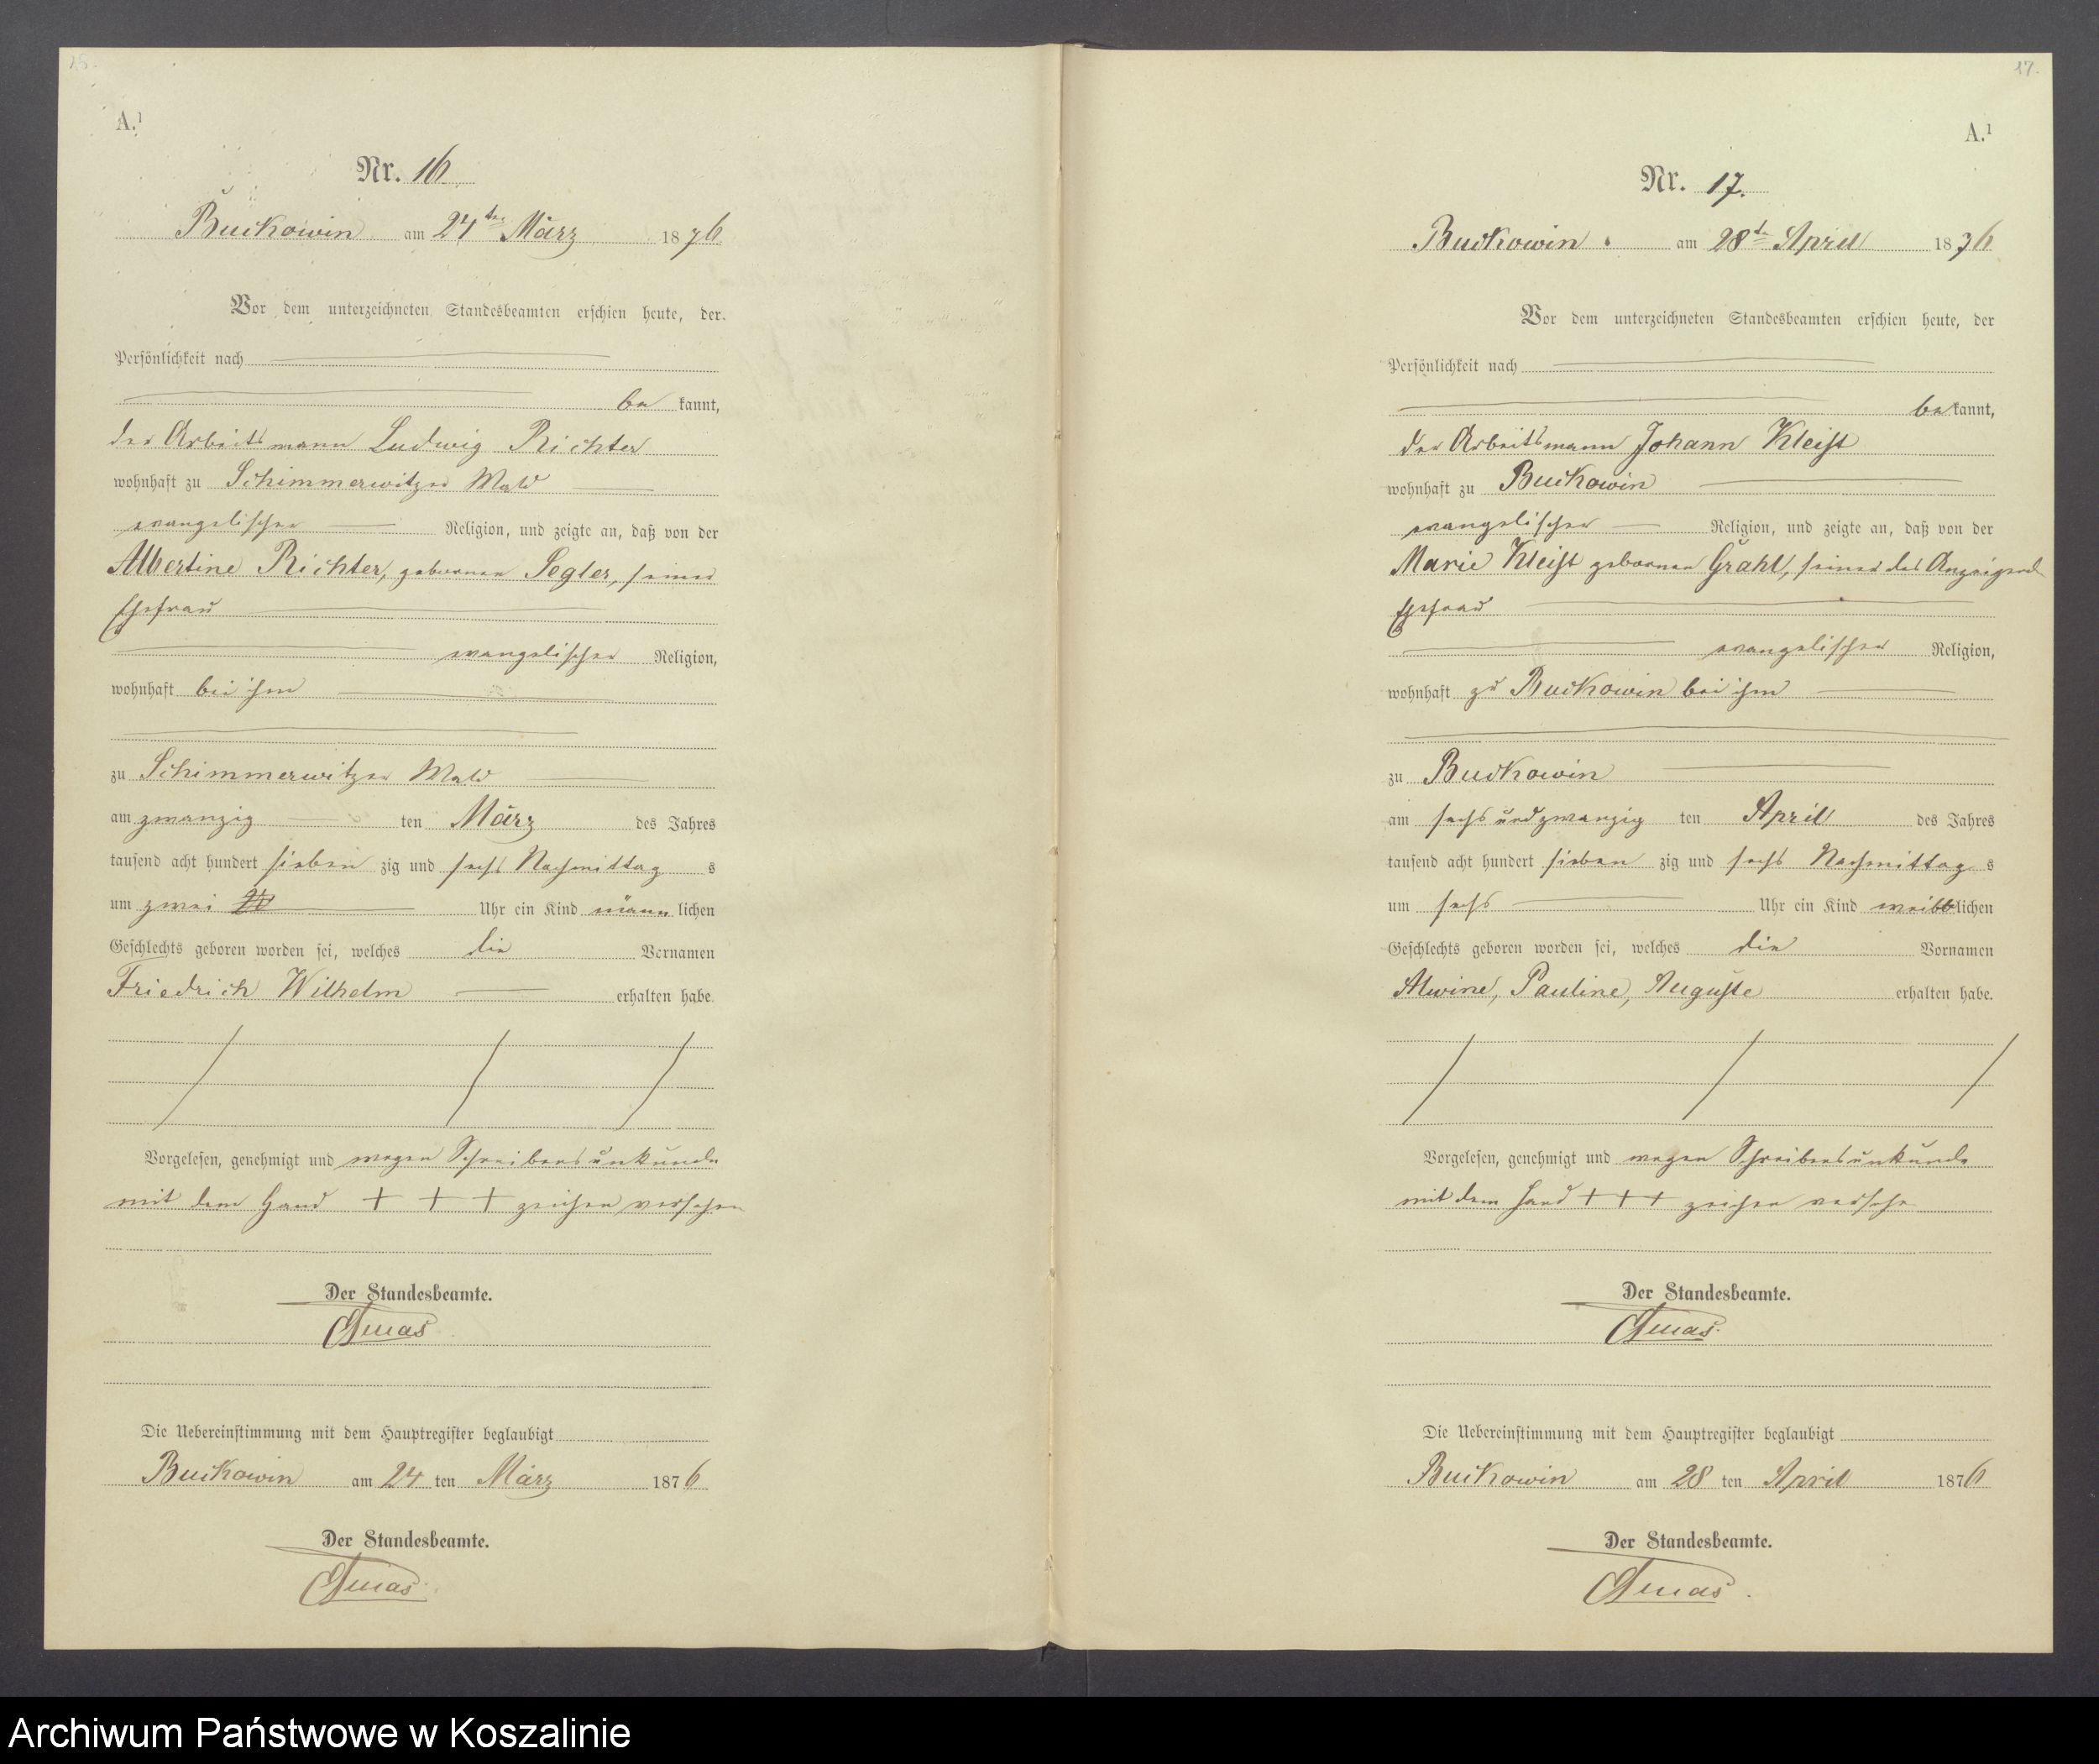 A.¹
Nr. 16
Buckowin am 24ten März 1876
Vor dem unterzeichneten Standesbeamten erschien heute, der
Persönlichkeit nach
be kannt,
der Arbeitsmann Ludwig Richter
wohnhaft zu Schimmerwitzer Wald
evangelischer Religion, und zeigte an, daß von der
Albertine Richter, geborenen Segler, seiner
Ehefrau
evangelischer Religion,
wohnhaft bei ihm
zu Schimmerwitzer Wald
am zwanzig ten März des Jahres
tausend acht hundert sieben zig und sechs Nachmittag s
um zwei Uhr ein Kind männ lichen
Geschlechts geboren worden sei, welches die Vornamen
Friedrich Wilhelm erhalten habe.
Vorgelesen, genehmigt und wegen Schreibensunkunde
mit dem Hand + + + zeichen versehen
Der Standesbeamte.
Die Uebereinstimmung mit dem Hauptregister beglaubigt
Buckowin am 24 ten März 1876
Der Standesbeamte.
17.
A.¹
Nr. 17.
Buckowin am 28te April 1876
Vor dem unterzeichneten Standesbeamten erschien heute, der
Persönlichkeit nach
be kannt,
der Arbeitsmann Johann Kleist
wohnhaft zu Buckowin
evangelischer Religion, und zeigte an, daß von der
Marie Kleist geborenen Grahl, seiner des Anzeigend
Ehefrau
evangelischer Religion,
wohnhaft zu Buckowin bei ihm
zu Buckowin
am sechsundzwanzig ten April des Jahres
tausend acht hundert sieben zig und sechs Nachmittag s
um sechs Uhr ein Kind weiblichen
Geschlechts geboren worden sei, welches die Vornamen
Alwine, Pauline, Auguste erhalten habe.
Vorgelesen, genehmigt und wegen Schreibensunkunde
mit dem Hand + + + zeichen versehe
Der Standesbeamte.
Die Uebereinstimmung mit dem Hauptregister beglaubigt
Buckowin am 28 ten April 1876
Der Standesbeamte.
Archiwum Państwowe w Koszalinie